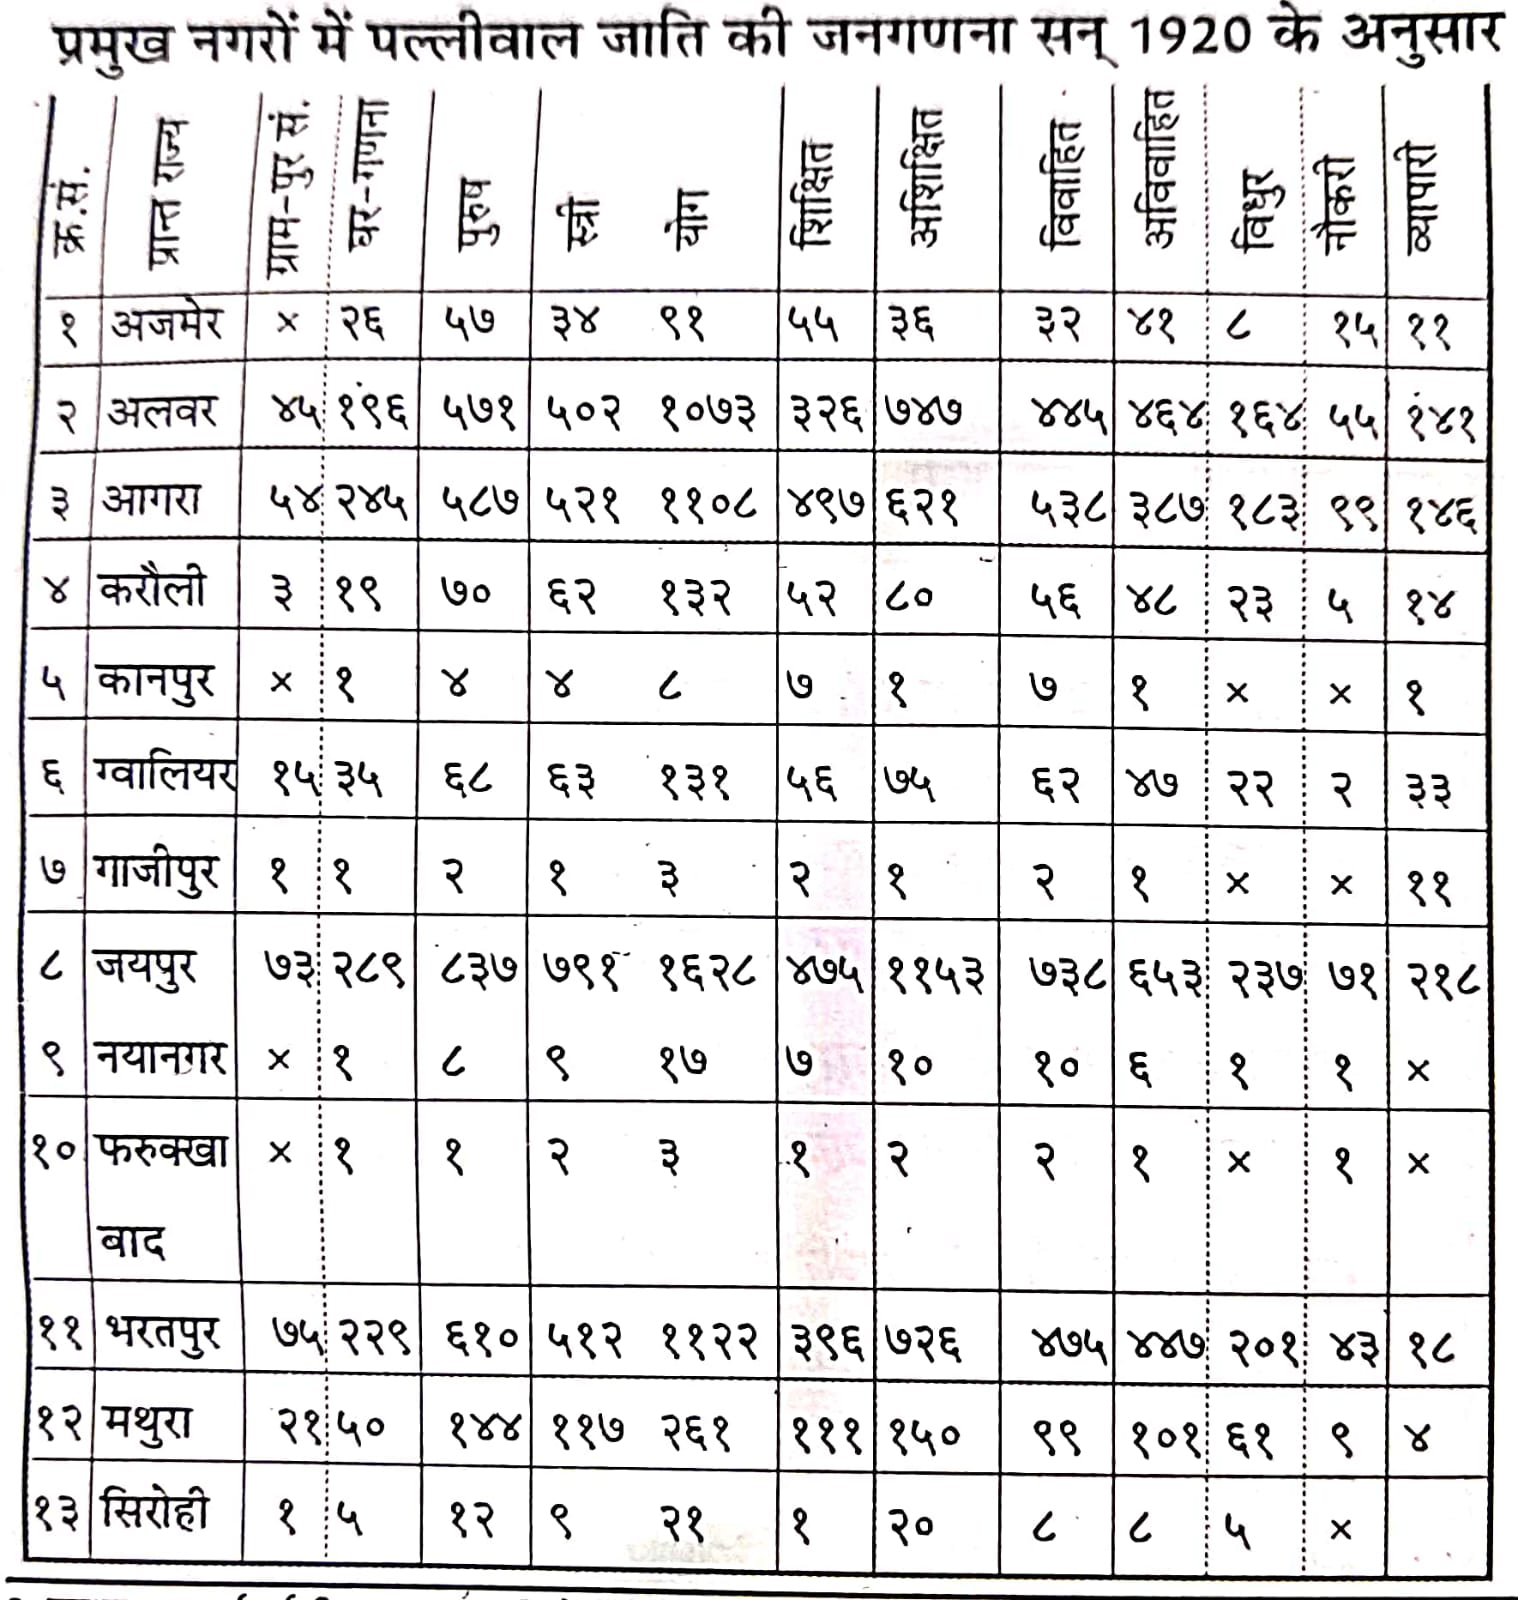 प्रमुख नगरों में पल्लीवाल जाति की जनगणना सन् 1920 के अनुसार
क्र.सं. प्रान्त राज्य ग्राम-पुर सं. घर-गणना पुरुष स्त्री योग शिक्षित अशिक्षित विवाहित अविवाहित विधुर नौकरी व्यापारी
१ अजमेर × २६ ५७ ३४ ९१ ५५ ३६ ३२ ४१ ८ १५ ११
२ अलवर ४५ १९६ ५७१ ५०२ १०७३ ३२६ ७४७ ४४५ ४६४ १६४ ५५ १४१
३ आगरा ५४ २४५ ५८७ ५२१ ११०८ ४९७ ६२१ ५३८ ३८७ १८३ ९९ १४६
४ करौली ३ १९ ७० ६२ १३२ ५२ ८० ५६ ४८ २३ ५ १४
५ कानपुर × १ ४ ४ ८ ७ १ ७ १ × × १
६ ग्वालियर १५ ३५ ६८ ६३ १३१ ५६ ७५ ६२ ४७ २२ २ ३३
७ गाजीपुर १ १ २ १ ३ २ १ २ १ × × ११
८ जयपुर ७३ २८९ ८३७ ७९१ १६२८ ४७५ ११५३ ७३८ ६५३ २३७ ७१ २१८
९ नयानगर × १ ८ ९ १७ ७ १० १० ६ १ १ ×
१० फरुक्खा × १ १ २ ३ १ २ २ १ × १ ×
बाद
११ भरतपुर ७५ २२९ ६१० ५१२ ११२२ ३९६ ७२६ ४७५ ४४७ २०१ ४३ १८
१२ मथुरा २१ ५० १४४ ११७ २६१ १११ १५० ९९ १०१ ६१ ९ ४
१३ सिरोही १ ५ १२ ९ २१ १ २० ८ ८ ५ ×